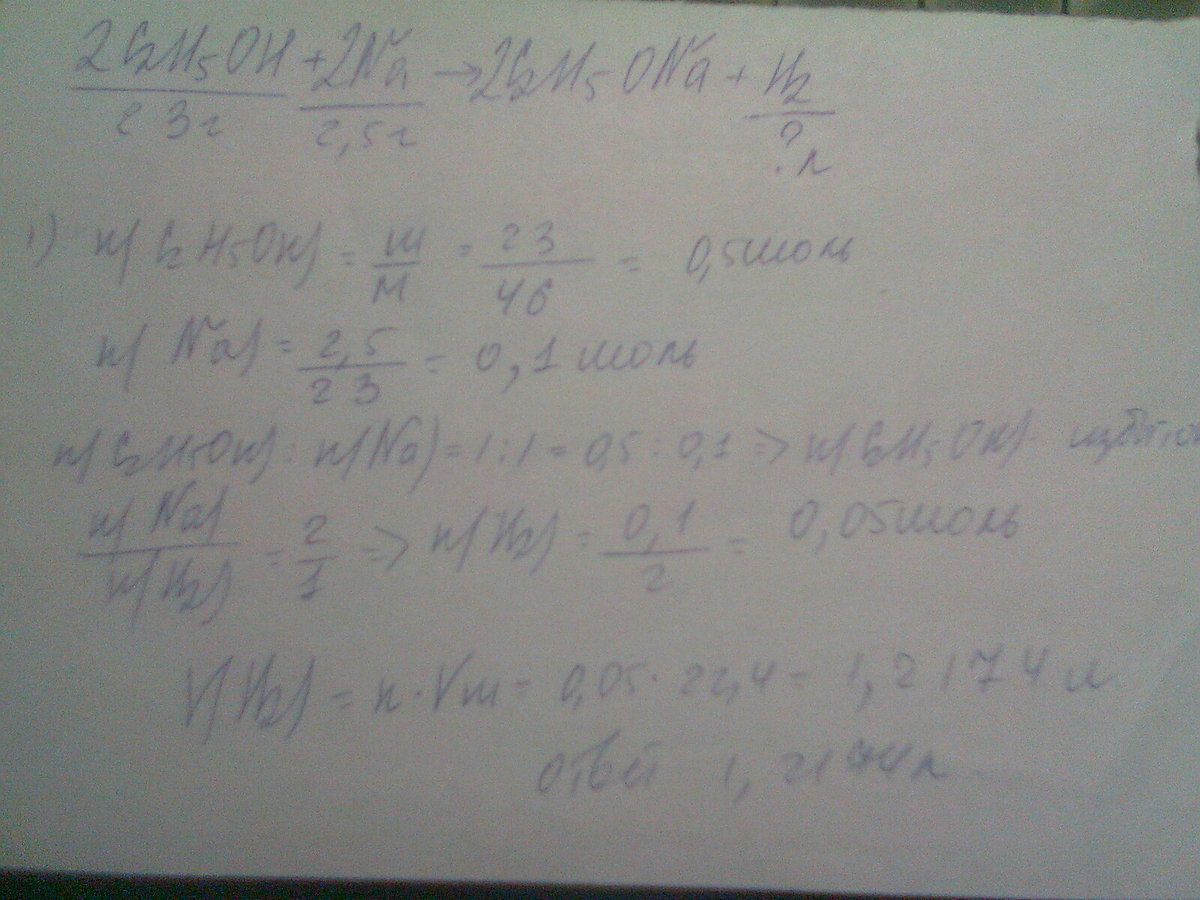 2C₂H₅OH + 2Na → 2C₂H₅ONa + H₂
23г 2,5г ?л
1) n(C₂H₅OH) = m/M = 23/46 = 0,5моль
n(Na) = 2,5/23 = 0,1 моль
n(C₂H₅OH) : n(Na) = 1:1 = 0,5 : 0,1 => n(C₂H₅OH)
n(Na)/n(H₂) = 2/1 => n(H₂) = 0,1/2 = 0,05моль
V(H₂) = n·Vm = 0,05·22,4 = 1,2174 л
ответ 1,2174л